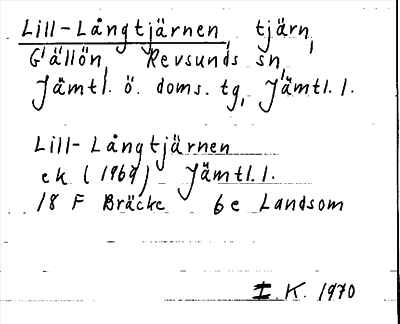 Lill-Långtjärnen, tjärn,
Gällön, Revsunds sn,
Jämtl. ö. doms. tg, Jämtl. l.
Lill-Långtjärnen
ek (1969) Jämtl. l.
18 F Bräcke 6e Landsom
I.K. 1970